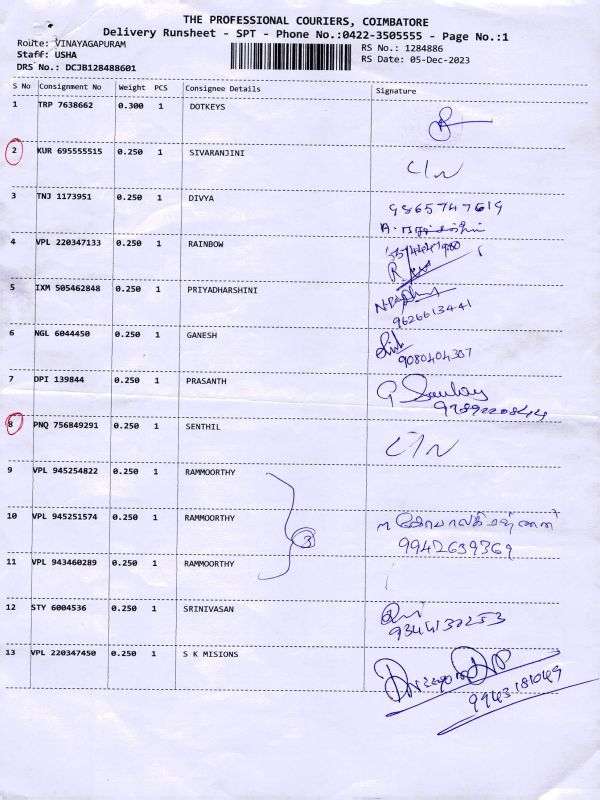 THE PROFESSIONAL COURIERS, COIMBATORE
Delivery Runsheet - SPT - Phone No.:0422-3505555 - Page No.:1
Route: VINAYAGAPURAM
RS No.: 1284886
Staff: USHA
RS Date: 05-Dec-2023
DRS No.: DCJB128488601
S No Consignment No Weight PCS Consignee Details Signature
1 TRP 7638662 0.300 1 DOTKEYS
2 KUR 695555515 0.250 1 SIVARANJINI C/N
3 TNJ 1173951 0.250 1 DIVYA 9865747619
4 VPL 220347133 0.250 1 RAINBOW
5 IXM 505462848 0.250 1 PRIYADHARSHINI
9626613441
6 NGL 6044450 0.250 1 GANESH
9080404307
7 DPI 139844 0.250 1 PRASANTH
8 PNQ 756849291 0.250 1 SENTHIL C/N
9 VPL 945254822 0.250 1 RAMMOORTHY
10 VPL 945251574 0.250 1 RAMMOORTHY
3
9942639369
11 VPL 943460289 0.250 1 RAMMOORTHY
12 STY 6004536 0.250 1 SRINIVASAN
9344132253
13 VPL 220347450 0.250 1 S K MISIONS
9943181049